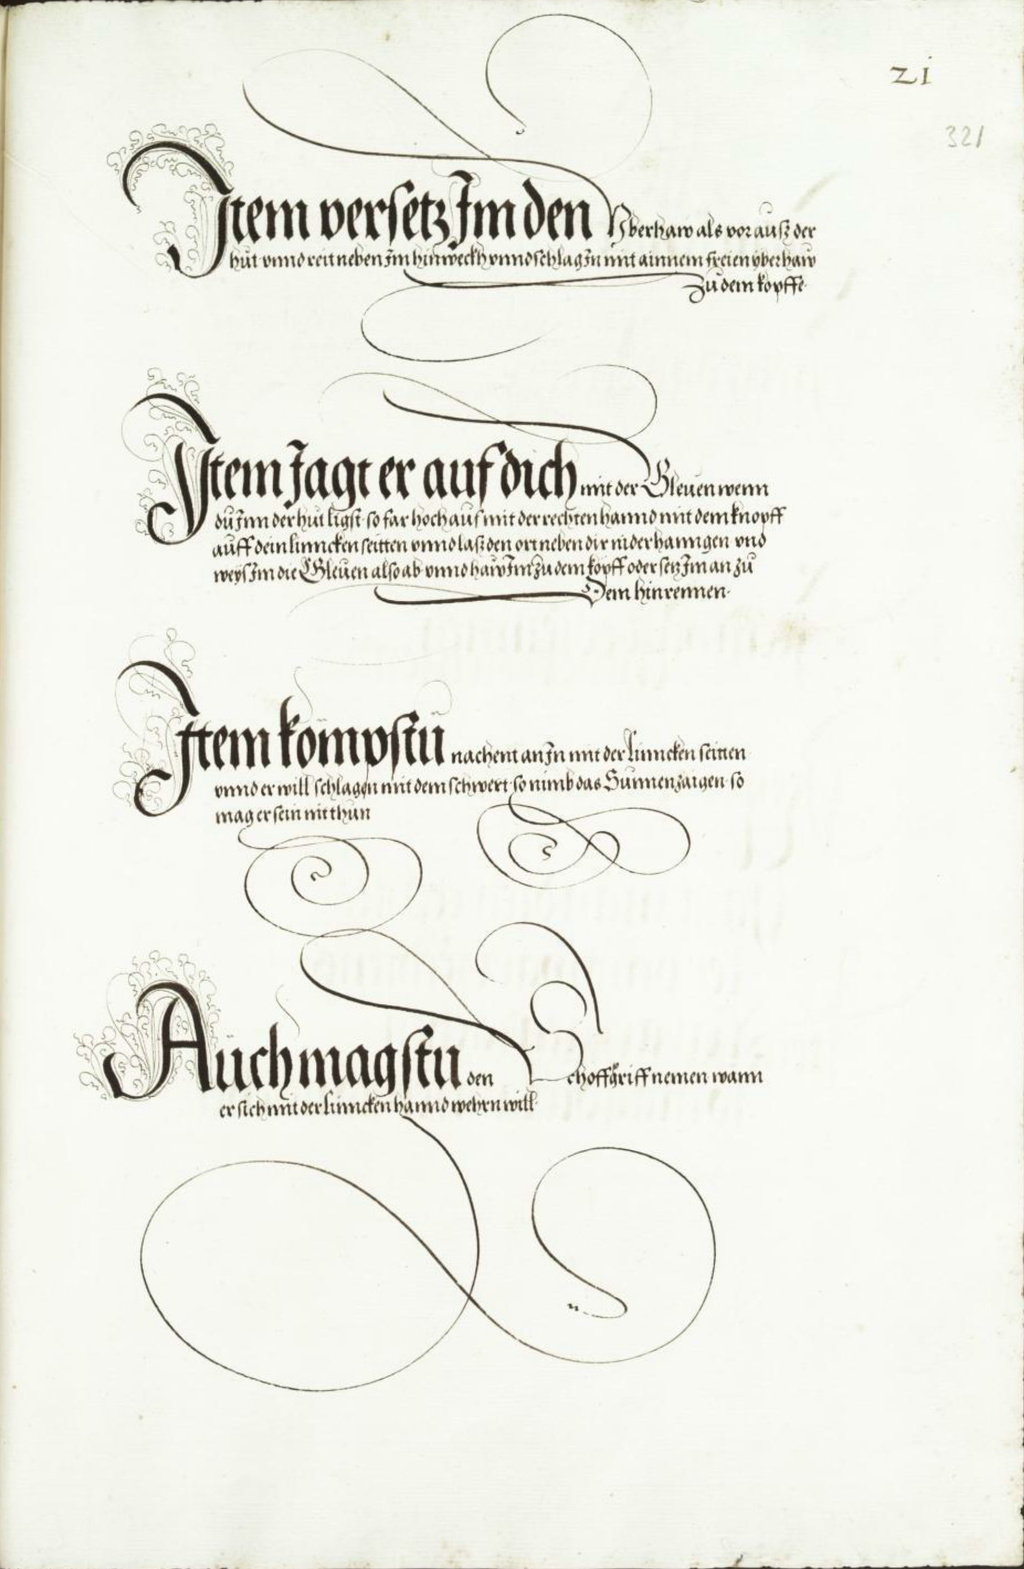 21
321
Item versetz Im den Vberhaw als vor ausz der
hut vnnd reit neben Im hinweckh vnnd schlag In mit ainnem freien vberhaw
zu dem kopffe·
Item Jagt er auf dich mit der Gleuen wenn
du Inn der hut ligst· so far hoch auf mit der rechten hannd mit dem knopff
auff dein linncken seitten vnnd lasz den ort neben dir nider hanngen vnd
weys Im die Gleuen also ab vnnd haw Im zu dem kopff oder setz Im an zu
Dem hin rennen·
Item kompstu nachent an In mit der linncken seitten
vnnd er will schlagen mit dem schwert· so nimb das Sunnenzaigen· so
mag er sein nit thun
Auch magstu den Schoffgriff nemen wann
er sich mit der linncken hannd wehrn will·